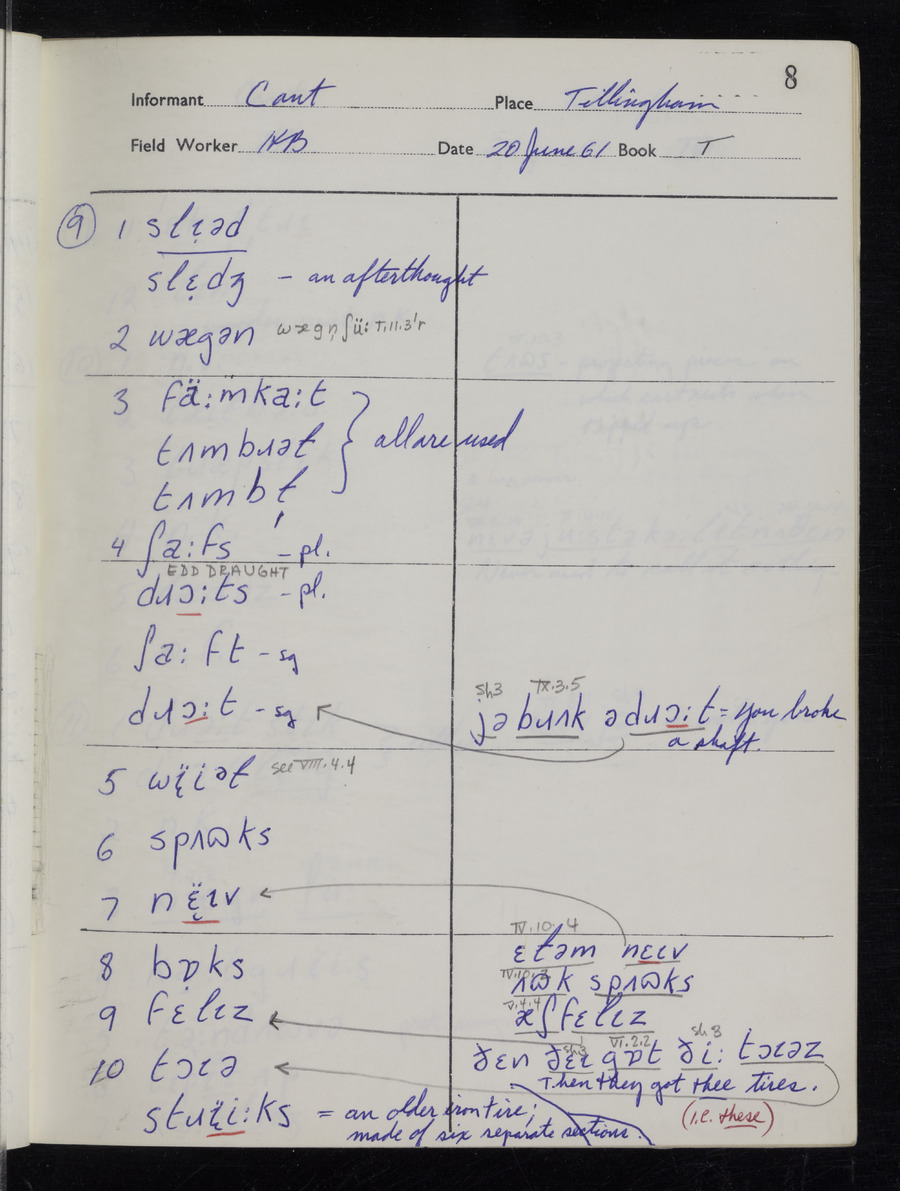 8
Informant Cant Place Tillingham
Field Worker HB Date 20 June 61 Book T
9 1 slɪ̣əd
slɛ̣dʒ – an afterthought
2 wægən wægn̩ʃü: T.11.3'r
3 fä:mka:t
tʌmbɹət } all are used
tʌmbt̩
4 ʃa:fs – pl.
EDD DRAUGHT
dɹɔ:ts – pl.
ʃa:ft – sg
dɹɔ:t – sg
sh3 IX.3.5
jə bɹʌk ə dɹɔ:t = you broke
a shaft.
5 wïịət see VIII.4.4
6 spʌɷks
7 nɛ̣̈ɪv
8 bɒks
9 fɛlɪz
10 tɔɪə
stɹïi:ks = an older iron tire;
made of six separate sections.
IV.10.4
ɛtəm nɛɪv
IV.10.3
ʌɷk spʌɷks
V.4.4
æʃ fɛlɪz
sh3 VI.2.2 sh 8
ðɛn ðɛɪ gɒt ði: tɔɪəz
Then they got thee tires.
(i.e. these)